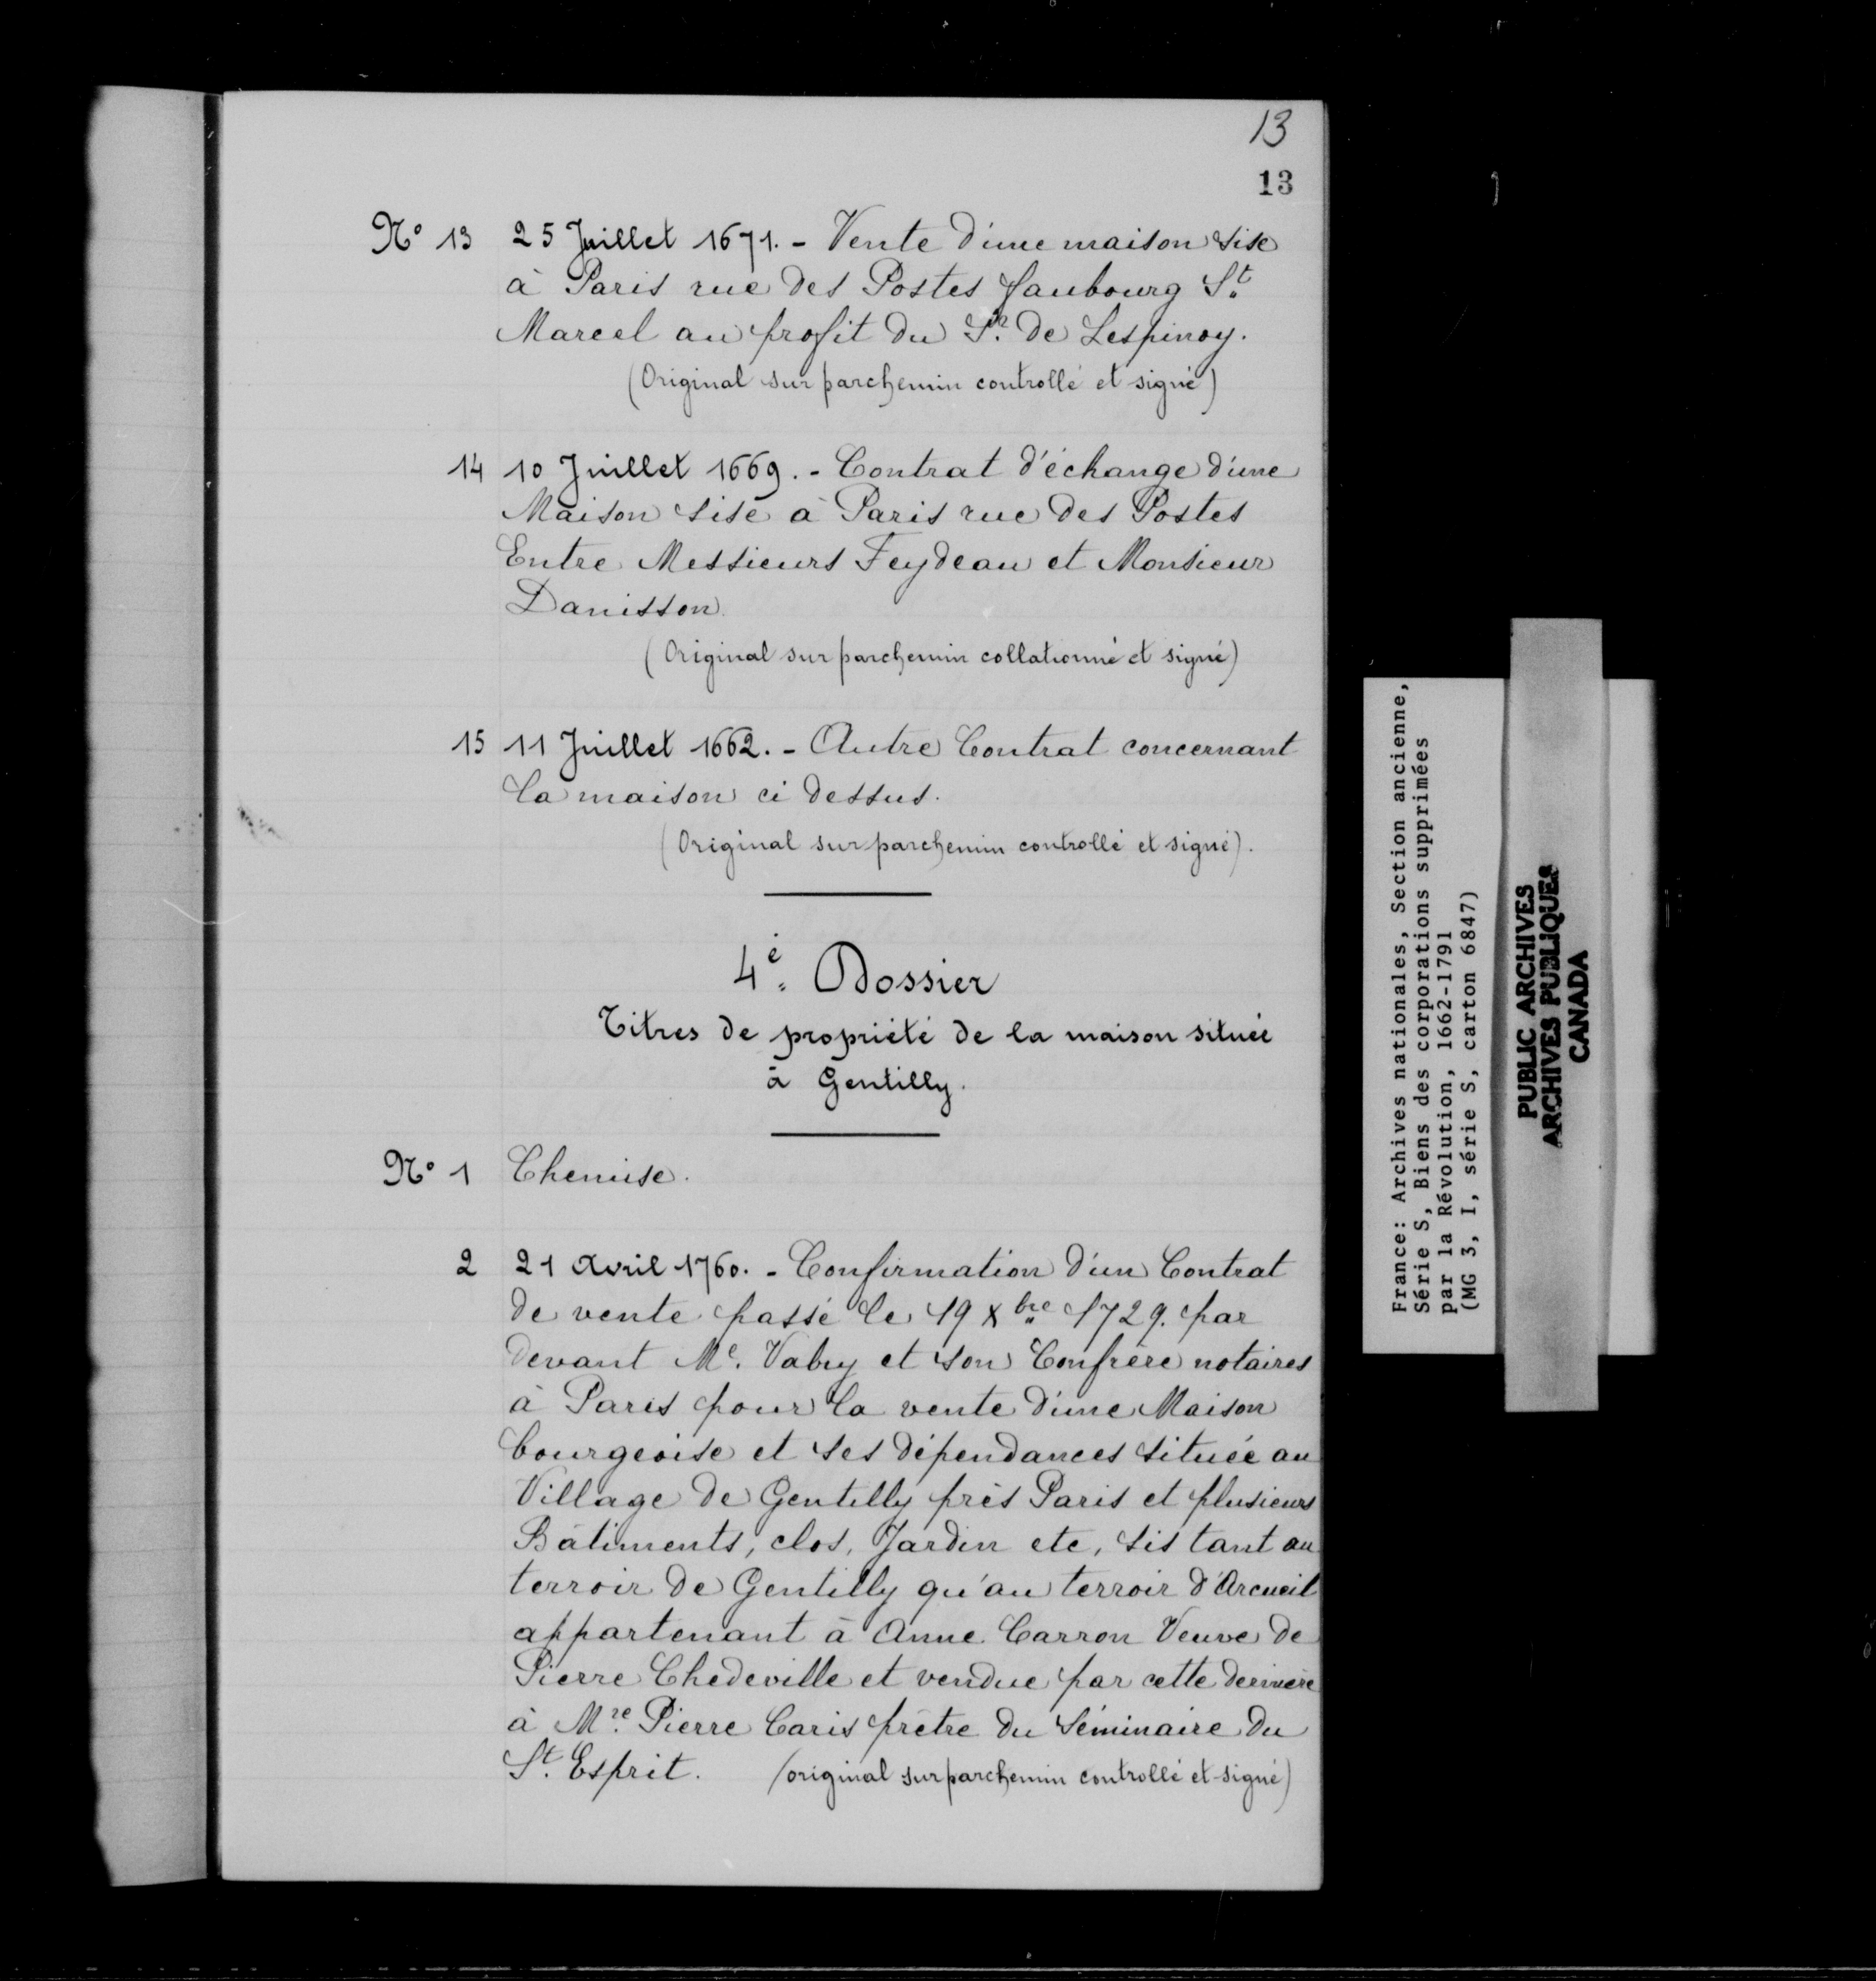 13
13
N° 13 25 Juillet 1671. - Vente d'une maison sise
à Paris rue des Postes faubourg St.
Marcel au profit du Sr. de Lespinoy.
(Original sur parchemin controllé et signé)
14 10 Juillet 1669. - Contrat d'échange d'une
Maison sise à Paris rue des Postes
Entre Messieurs Feydeau et Monsieur
Danisson.
(Original sur parchemin collationné et signé)
15 11 Juillet 1662. - Autre Contrat concernant
la maison ci dessus.
(Original sur parchemin controllé et signé).
4e. Dossier
Titres de propriété de la maison située
à Gentilly.
N° 1 Chemise.
2 21 Avril 1760. - Confirmation d'un Contrat
de vente passé le 19 Xbre 1729. par
devant Me. Vabry et son Confrère notaires
à Paris pour la vente d'une Maison
bourgeoise et ses dépendances située au
Village de Gentilly près Paris et plusieurs
Bâtiments, clos, Jardin etc, sis tant au
terroir de Gentilly qu'au terroir d'Arcueil
appartenant à Anne Carron Veuve de
Pierre Chedeville et vendue par cette dernière
à Mre. Pierre Caris prêtre du Séminaire du
St. Esprit. (original sur parchemin controllé et signé)
France: Archives nationales, Section ancienne,
Série S, Biens des corporations supprimées
par la Révolution, 1662-1791
(MG 3, I, série S, carton 6847)
PUBLIC ARCHIVES
ARCHIVES PUBLIQUES
CANADA